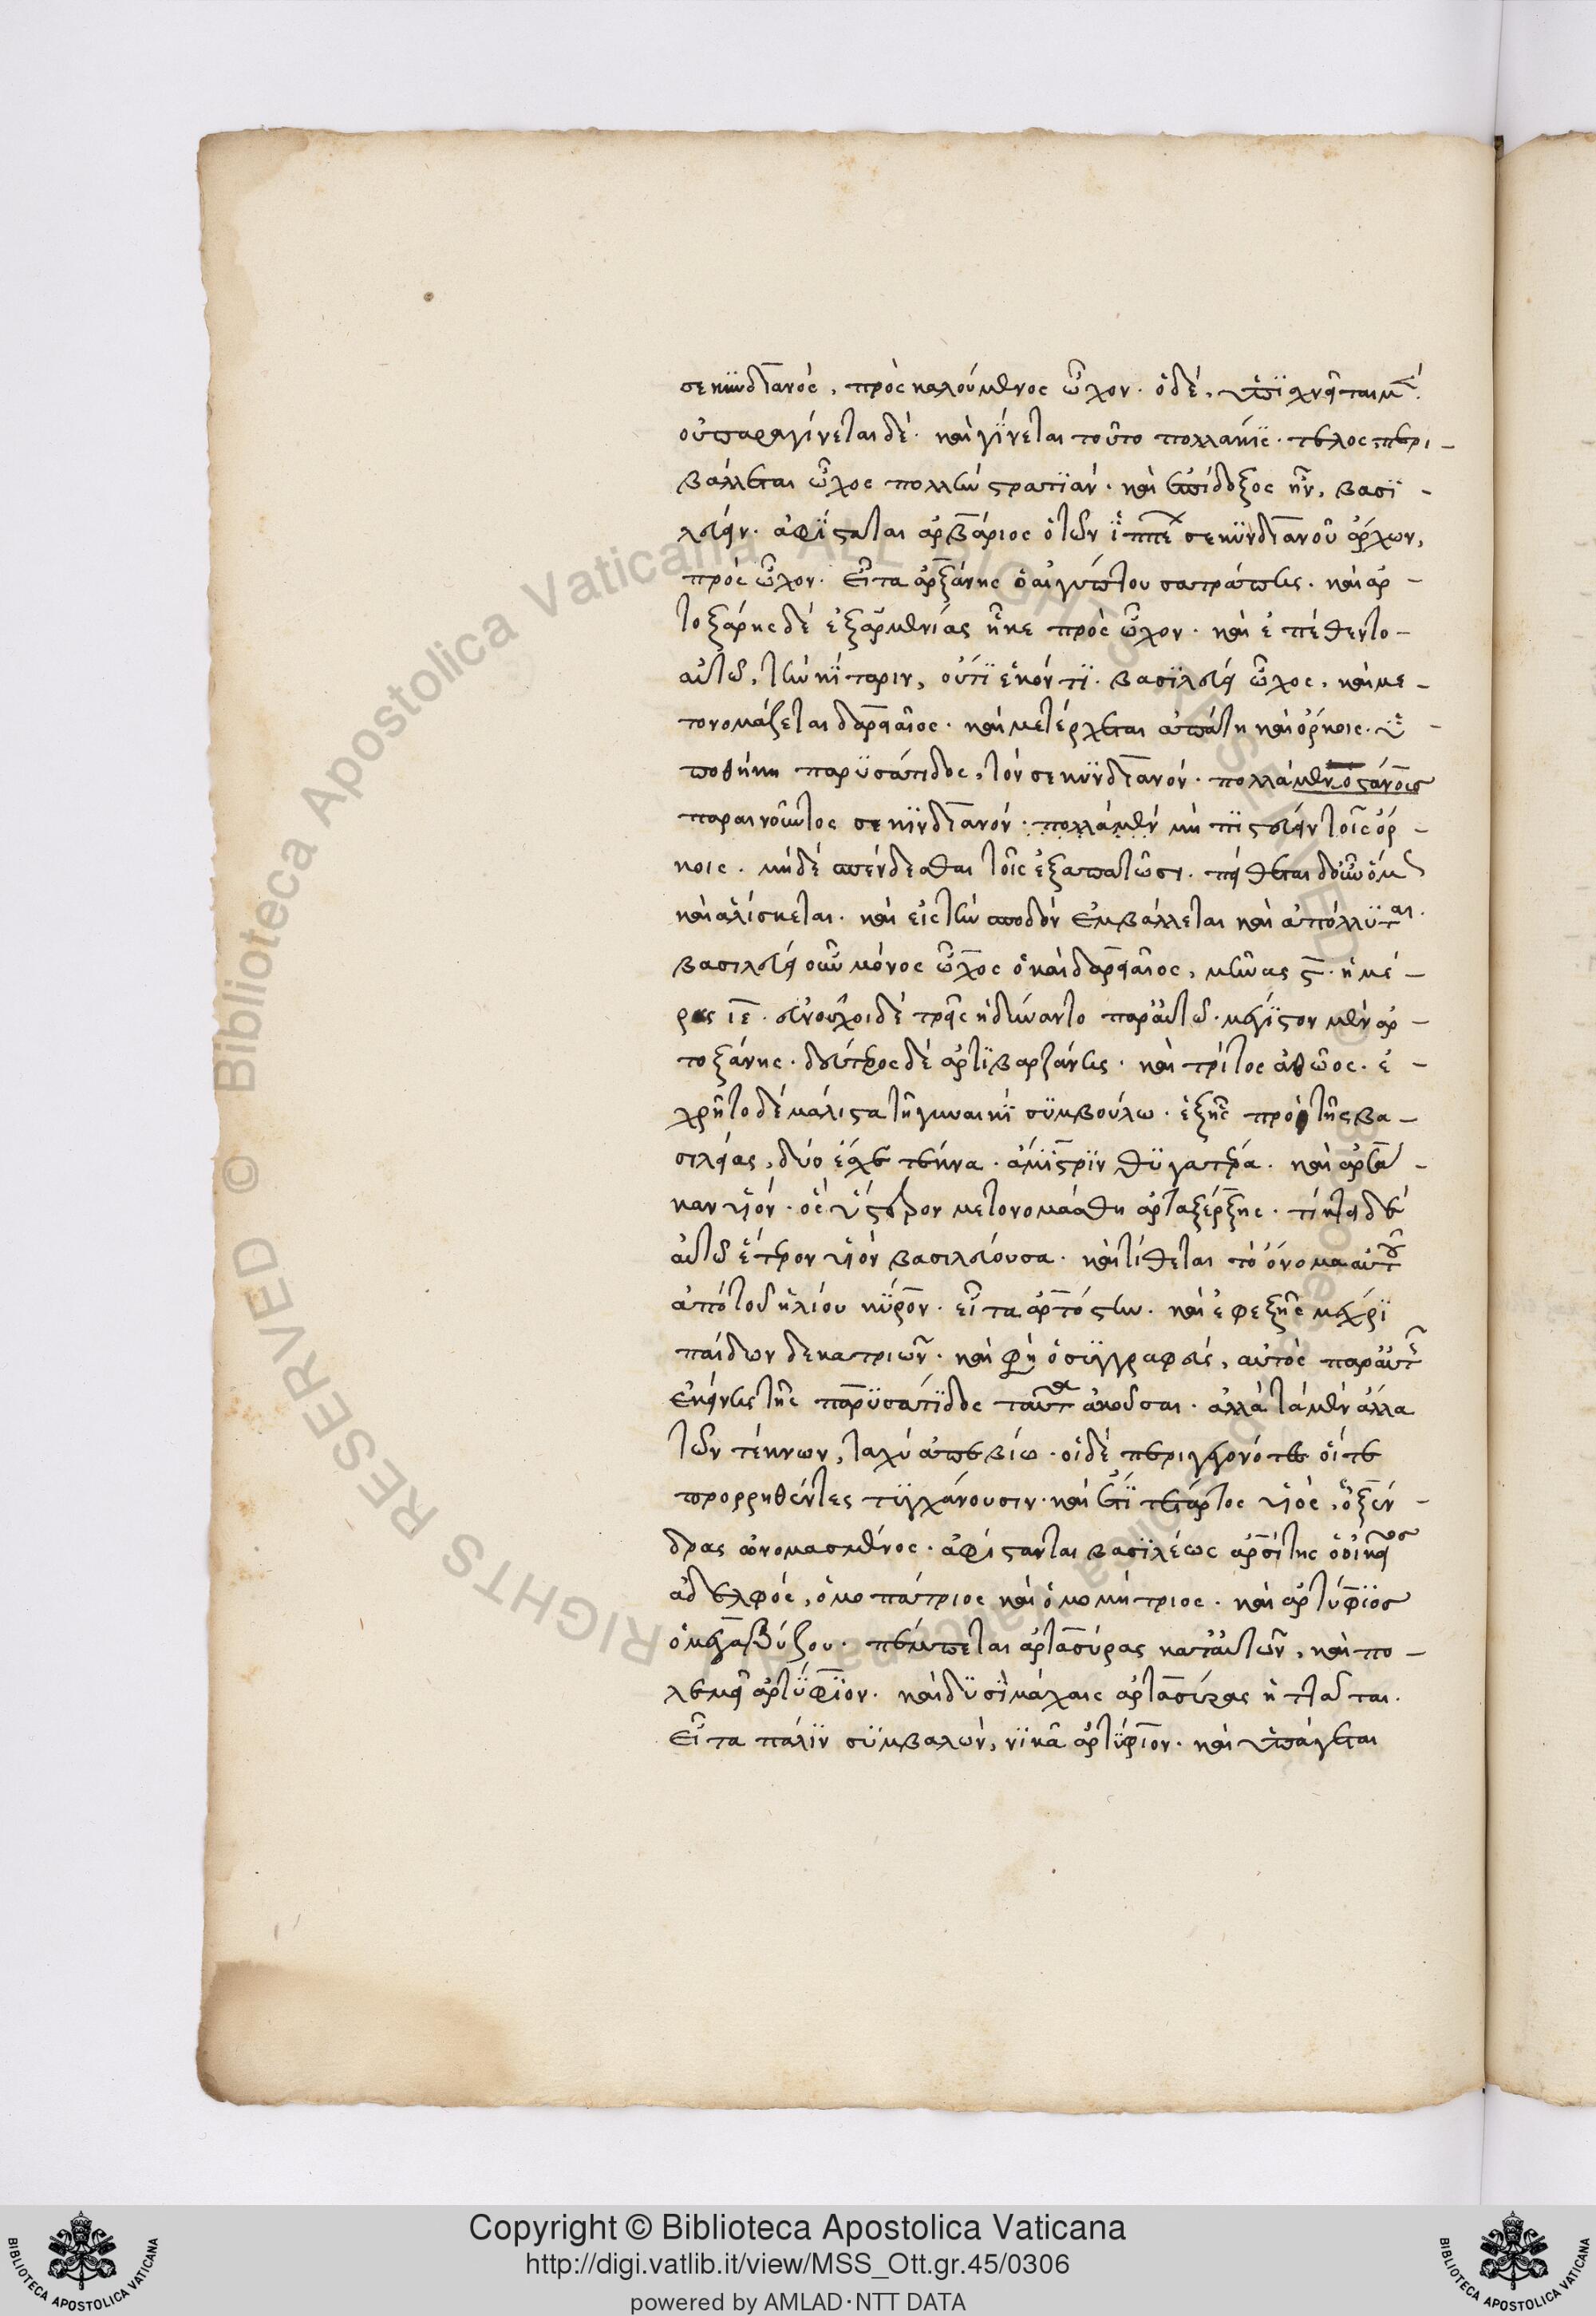 σεκυνδιανὸς, πρὸς καλούμενος ὦχον. ὁ δὲ, ὑπϊχνεῖται μὲν.
οὐ παραγίνεται δέ. καὶ γίνεται τοῦτο πολλάκϊς. τέλος περι-
βάλλεται ὦχος πολλὴν στρατϊὰν. καὶ ἐπίδοξος ἦν, βασϊ-
λεύειν. ἀφΐσταται ἀρβάριος ὁ τῶν ἱππέων σεκυνδιανοῦ ἄρχων,
πρὸς ὦχον. εἶτα ἀρξάνης ὁ αἰγύπτου σατράπης. καὶ ἀρ-
τοξάρης δὲ ἐξ ἀρμενίας ἧκε πρὸς ὦχον. καὶ ἐπέθεντο
αὐτῶ, τὴν κίταριν, οὔτϊ ἑκόντϊ. βασϊλεύει ὦχος, καὶ με-
τονομάζεται δαρειαῖος. καὶ μετέρχεται ἀπάτη καὶ ὅρκοις. ὑ-
ποθήκη παρϋσάτιδος, τὸν σεκϋνδιανόν. πολλὰ μὲν οστάνοις
παραινοῦντος σεκυνδιανόν. πολλὰ μὲν μὴ πϊστεύειν τοῖς ὅρ-
κοις. μηδὲ σπένδεσθαι τοῖς ἐξαπατῶσι. πείθεται δ' οὖν ὅμως
καὶ ἁλίσκεται. καὶ εἰς τὴν σποδὸν ἐμβάλλεται καὶ ἀπόλλϋται.
βασιλεύει οὖν μόνος ὦχος ὁ καὶ δαρειαῖος, μῆνας ϛ. ἡμέ-
ρας ιε. εὐνοῦχοι δὲ τρεῖς ἠδύναντο παρ' αὐτῶ. μέγϊστον μὲν ἀρ-
τοξάνης. δεύτερος δὲ ἀρτϊβαρζάνης. καὶ τρίτος ἀθῶος. ἐ-
χρῆτο δὲ μάλιστα τῆ γυναικὶ σϋμβούλω. ἐξ ἧς πρὸ τῆς βα-
σιλείας, δύο ἔσχε τέκνα. ἀμΐστρϊν θϋγατέρα. καὶ ἀρσά-
καν υἱόν. ὃς ὕστερον μετονομάσθη ἀρταξέρξης. τίκτει δὲ
αὐτῶ ἕτερον υἱὸν βασιλεύουσα. καὶ τίθεται τὸ ὄνομα αὐτοῦ
ἀπὸ τοῦ ἡλίου κῦρον. εἶτα ἀρτόστην. καὶ ἐφεξῆς μέχρϊ
παίδων δεκατριῶν. καὶ φησὶν ὁ σϋγγραφεὺς, αὐτὸς παρ' αὐτῆς
ἐκείνης τῆς παρϋσάτϊδος ταῦτα ἀκοῦσαι. ἀλλὰ τὰ μὲν ἄλλα
τῶν τέκνων, ταχὺ ἀπεβίω. οἱ δὲ περιγεγονότες οἵ τε
προρρηθέντες τϋγχάνουσιν. καὶ ἔτϊ τέταρτος υἱὸς, ὀξέν-
δρας ὠνομασμένος. ἀφίσταται βασϊλέως ἀρσίτης ὁ οἰκεῖος
ἀδελφός, ὁμοπάτριος καὶ ὁμομήτριος. καὶ ἀρτύφϊος
ὁ μεγαβύζου. πέμπεται ἀρτασύρας κατ' αὐτῶν, καὶ πο-
λεμεῖ ἀρτύφϊον. καὶ δϋσὶ μάχαις ἀρτασύρας ἡττᾶται.
εἶτα πάλϊν σϋμβαλὼν, νϊκᾶ ἀρτύφιον. καὶ ὑπάγεται
Copyright © Biblioteca Apostolica Vaticana
http://digi.vatlib.it/view/MSS_Ott.gr.45/0306
powered by AMLAD·NTT DATA